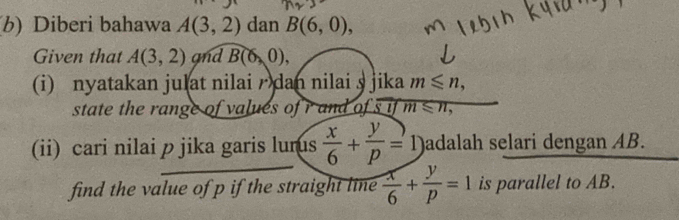 m lebih
(b) Diberi bahawa A(3, 2) dan B(6, 0),
Given that A(3, 2) and B(6, 0),
(i) nyatakan julat nilai r dan nilai s jika m ⩽ n,
state the range of values of r and of s if m ⩽ n,
(ii) cari nilai p jika garis lurus x/6 + y/p = 1 adalah selari dengan AB.
find the value of p if the straight line x/6 + y/p = 1 is parallel to AB.